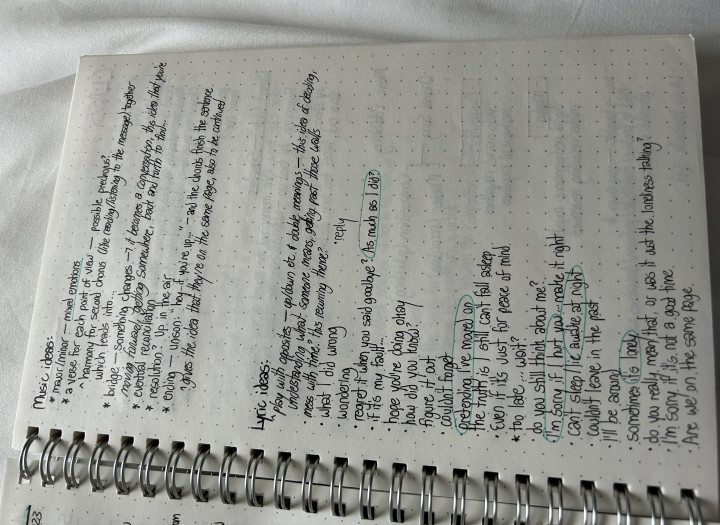 Music ideas:
* major/minor — mixed emotions
* a verse for each point of view — possible prechorus?
^ harmony for second chorus (like reading/listening to the message) together
which leads into...
* bridge — something changes → it becomes a conversation, this idea that you're
moving forward, getting somewhere, back and forth to that...
* eventual reconciliation
* resolution? Up in the air
* ending — unison: "hey, if you're up..." — and the chords finish the sentence
^ gives the idea that they're on the same page, also to be continued
Lyric ideas:
play with opposites — up/down etc & double meanings — this idea of decoding,
understanding what someone means, getting past those walls
mess with time? this recurring theme?
· what I did wrong
wondering reply
· regret it when you said goodbye? As much as I did?
if it's my fault...
· hope you're doing okay
· how did you know?
figure it out
· couldn't forget
pretending I've moved on
the truth is I still can't fall asleep
· Even if it's just for peace of mind
* too late... wait?
do you still think about me?
I'm sorry if I hurt you - make it right
can't sleep / lie awake at night
· couldn't leave in the past
· I'll be around
sometimes it's lonely
· do you really mean that, or was it just the loneliness talking?
· I'm sorry if it's not a good time
· Are we on the same page
23